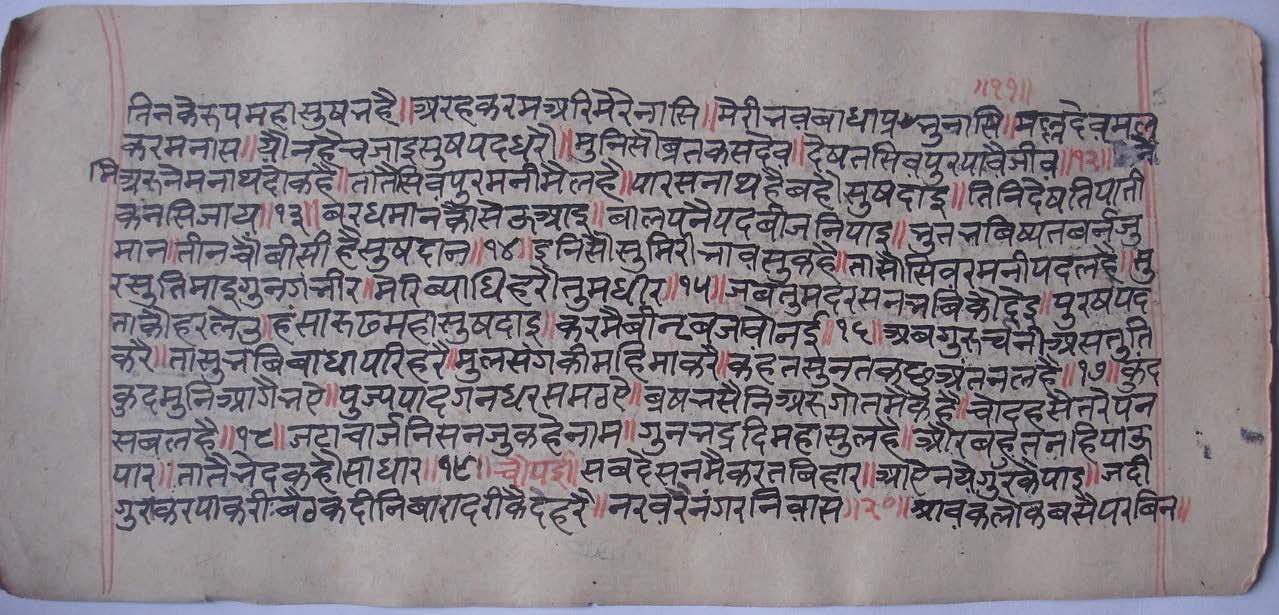 ॥११॥
तिनकेरुपमहासुषनहै॥अरहकरमअरिमेरेनासि॥मेरीनवबाधाप्रनुनासि॥मल्लदेवमल
करमनास॥औनहैचजाइसुषपदधरौ॥मुनिसौब्रतकसदेव॥देषतसिवपुरपावैजीव॥१२॥
मिअरुनेमनाथदोकहै॥तातैसिवपुरमनीमैलहै॥पारसनाथहैबहौसुषदाइ॥तिनिदेषतिपाती
कनसिजाय॥१३॥बरधमानकौसेऊआइ॥बालपनैपदबीजनिपाइ॥नुतनबिष्यतबर्नजु
मान॥तीनचौबीसीहैसुषदान॥१४॥इनिसौसुमिरीनावसुकहै॥तासौसिवरमनीपदलहै॥सु
रसुतिमाइगुनगंनीर॥मेरिब्याधिहरौतुमधीर॥१५॥जबतुमदरसननबिकौदेइ॥पुरषपद
ताकौहरलेतु॥हंसारुढमहासुषदाइ॥करमैबीनबजवोनई॥१६॥अबगुरुचर्नीअसतुति
करै॥तासुनबिबाधापरिहरै॥मुलसंगकीमहिमाकरै॥कहतसुनतकछुअंतनलहै॥१७॥कुंद
कुदमुनिआगैनए॥पुज्यपादगनधरसमठए॥ब्रषनसैनिअरुगोतमैकहै॥चोदहसैतरेपन
सबलहै॥१८॥जटाचार्जनिसनजुकहेनाम॥गुननद्रदिमहासुलहै॥औरबहतनहिपाऊ
पार॥तातैनेदकहौसाधार॥१९॥चौपई॥सबदेसनमैकरतबिहार॥आऐनयैगुरकैपाइ॥जदी
गुरांकरपाकरी॥बैठकदीनिबारादरीकैदेहरै॥नरवरैनंगरनिवास॥२०॥श्रावकलोकबसैपरबिन॥